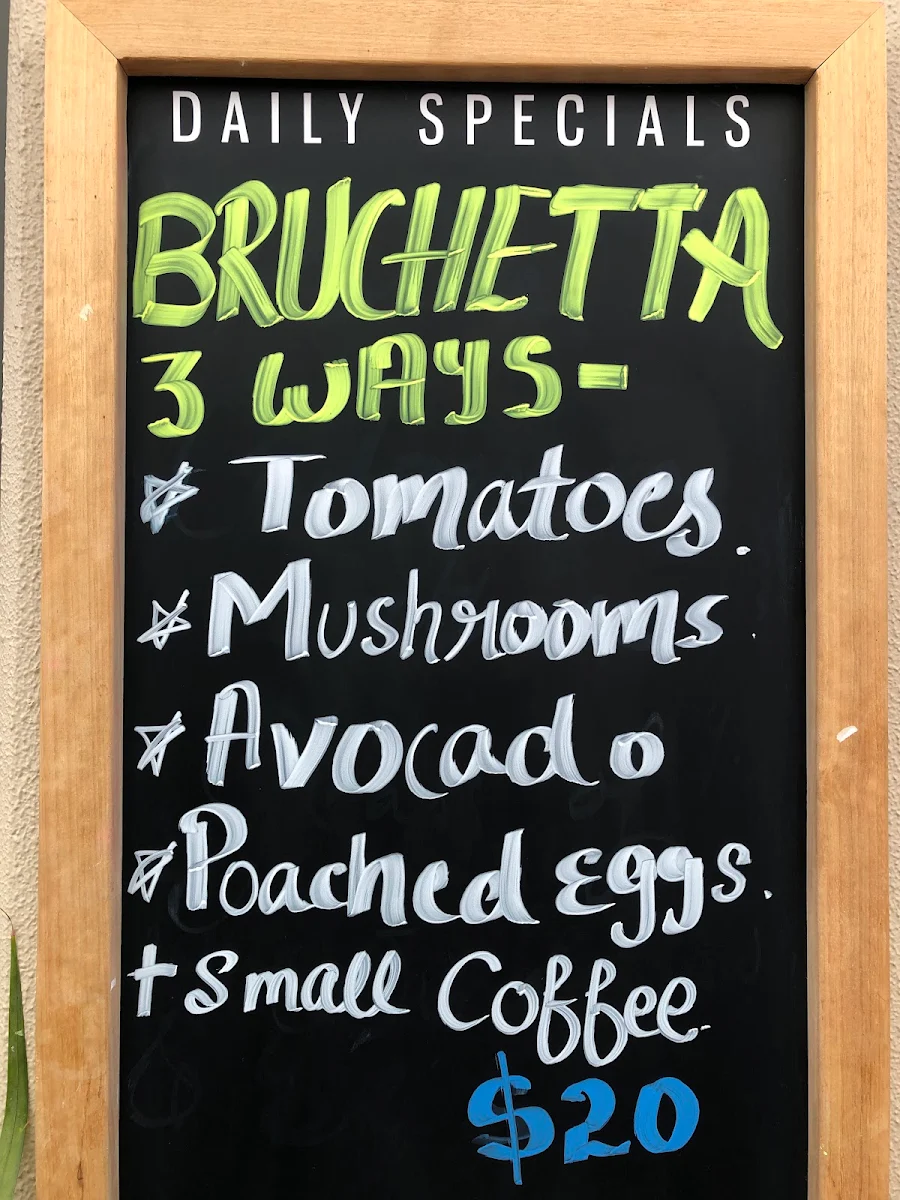 DAILY SPECIALS
BRUCHETTA
3 WAYS-
☆ Tomatoes.
☆ Mushrooms.
☆ Avocado
☆ Poached Eggs.
+ Small Coffee.
$20